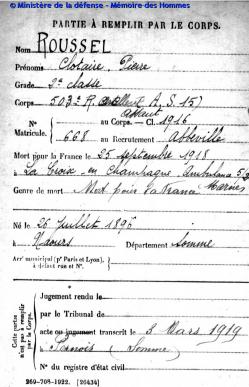 © Ministère de la défense - Mémoire des Hommes
PARTIE À REMPLIR PAR LE CORPS.
Nom ROUSSEL
Prénoms Clotaire, Pierre
Grade 2e classe
Corps 503e R. A. S. 15)
N° au Corps. — Cl. 1916
Matricule. 668 au Recrutement Abbeville
Mort pour la France le 25 septembre 1918
à La Croix en Champagne, Ambulance
Genre de mort Mort pour la France Marnes
Né le 26 Juillet 1896
à Naours Département Somme
Arr' municipal (p' Paris et Lyon),
à défaut rue et N°.
Cette partie
n'est pas à remplir
par le Corps.
Jugement rendu le
par le Tribunal de
acte ou jugement transcrit le 3 Mars 1919
à (Somme)
N° du registre d'état civil
269-708-1922. [26434]